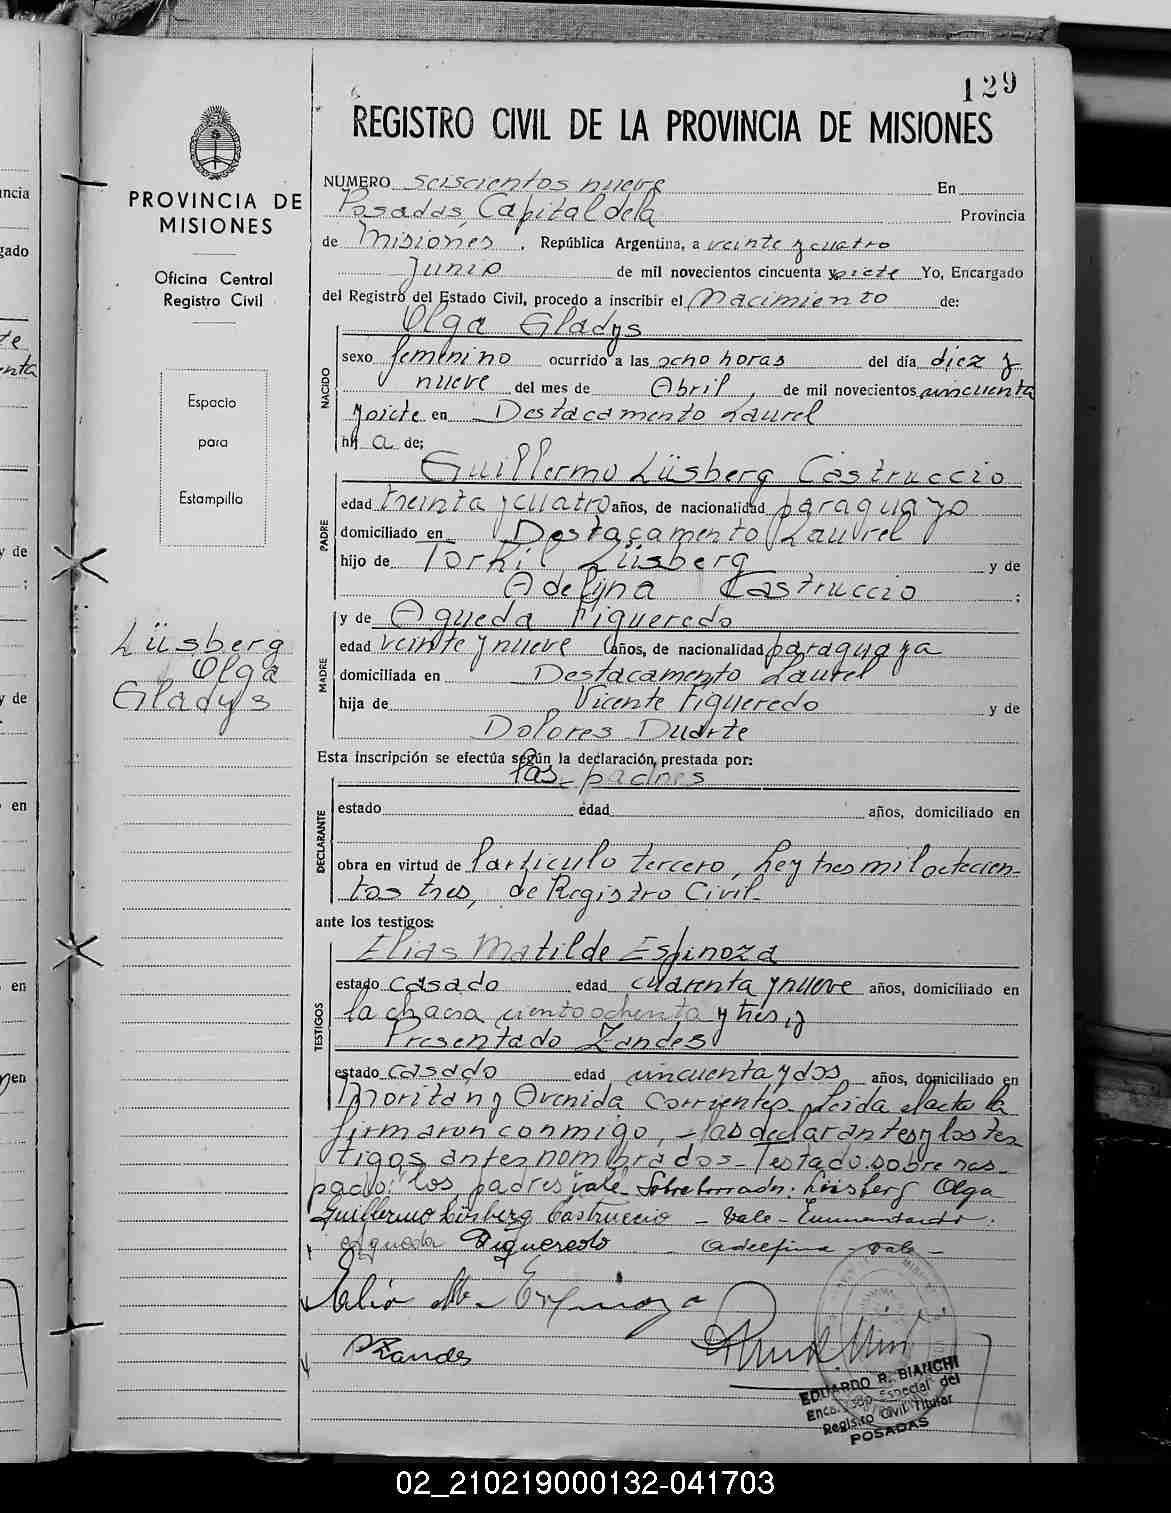 129
REGISTRO CIVIL DE LA PROVINCIA DE MISIONES
PROVINCIA DE
MISIONES
Oficina Central
Registro Civil
Espacio
para
Estampilla
Lüsberg
Olga
Gladys
NUMERO seiscientos nueve En
Posadas, Capital de la Provincia
de Misiones, República Argentina, a veinte y cuatro
Junio de mil novecientos cincuenta y siete Yo, Encargado
del Registro del Estado Civil, procedo a inscribir el Nacimiento de:
Olga Gladys
NACIDO
sexo femenino ocurrido a las ocho horas del día diez y
nueve del mes de Abril, de mil novecientos cincuenta
y siete en Destacamento Laurel
hij a de;
Guillermo Lüsberg Castruccio
PADRE
edad treinta y cuatro años, de nacionalidad paraguayo
domiciliado en Destacamento Laurel
hijo de Torkil Lüsberg y de
Adelfina Castruccio ;
y de Agueda Figueredo
MADRE
edad veinte y nueve años, de nacionalidad paraguaya
domiciliada en Destacamento Laurel
hija de Vicente Figueredo y de
Dolores Duarte
Esta inscripción se efectúa según la declaración prestada por:
los padres
DECLARANTE
estado edad años, domiciliado en
obra en virtud de l'articulo tercero, Ley tres mil ochocien-
tos tres, de Registro Civil-
ante los testigos:
TESTIGOS
Elias Matilde Espinoza
estado casado edad cuarenta y nueve años, domiciliado en
la chacra ciento ochenta y tres, y
Presentado Zandes
estado casado edad cincuenta y dos años, domiciliado en
y Avenida Corrientes- Leida el acta la
firmaron conmigo, los declarantes y los tes-
tigos antes nombrados- Testado: sobre ras-
pado: los padres: vale- Sobreborrado: Lüsberg Olga
Guillermo Lüsberg Castruccio - Vale - Enmendado:
Agueda Figueredo - Adelfina - Vale -
Zandes
EDUARDO R. BIANCHI
Especial del
Registro Civil Titular
POSADAS
ncia
gado
te
nta
y de
;
y de
en
en
en
02_210219000132-041703